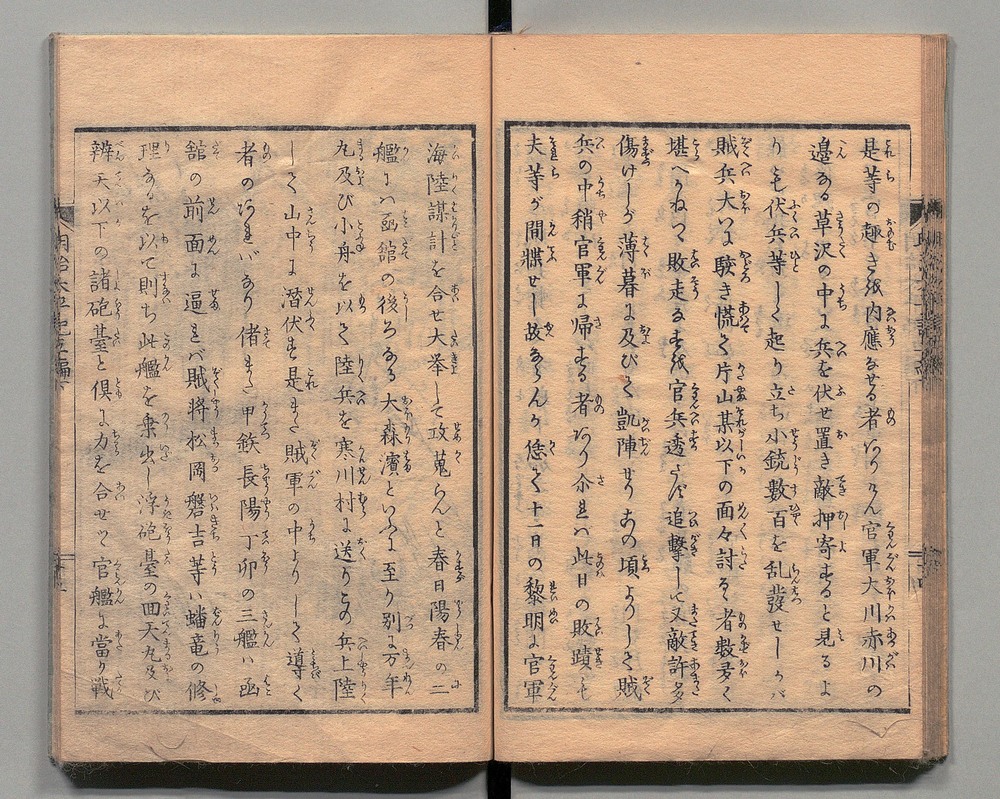 是等の趣きを内應なせる者ありけん官軍大川赤川の
邉なる草沢の中に兵を伏せ置き敵押寄すると見るよ
りも伏兵等しく起り立ち小銃數百を乱發せしかバ
賊兵大いに駭き慌て片山某以下の面々討るゝ者數多く
堪へかねつゝ敗走なすを官兵透さず追擊して又敵許多
傷けしが薄暮に及びて凱陣せりあの頃よりして賊
兵の中稍官軍に帰する者あり尒れバ此日の敗蹟も
夫等が間牒せし故ならんか恁て十一日の黎明に官軍
海陸謀計を合せ大挙して攻蒐らんと春日陽春の二
艦ハ函舘の後ろなる大森濱といふに至り別に万年
丸及び小舟を以て陸兵を寒川村に送りこの兵上陸
して山中に潜伏す是また賊軍の中よりして導く
者のあれバなり偖また甲鉄長陽丁卯の三艦ハ函
舘の前面に逼れバ賊將松岡磐吉等ハ蟠竜の修
理なるを以て則ち此艦を乗出し浮砲臺の回天丸及び
辨天以下の諸砲臺と倶に力を合せて官艦に當り戰